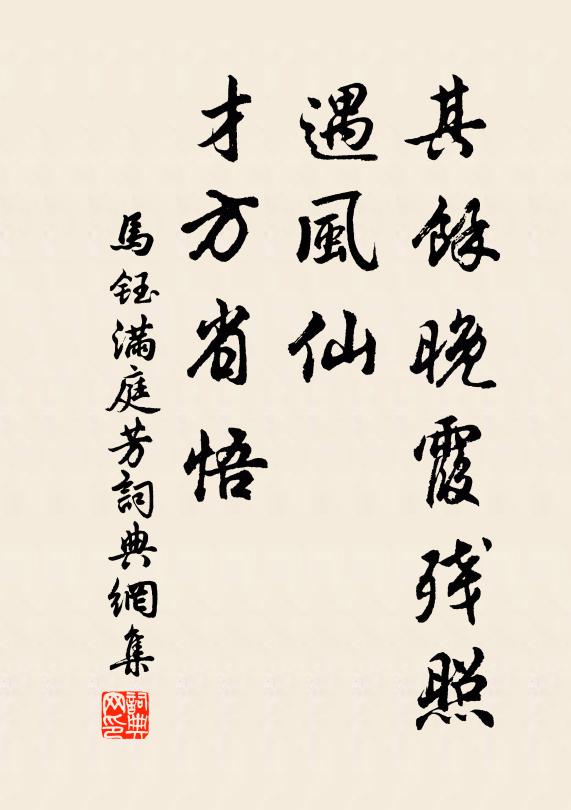 其餘晚霞残照
遇風仙
才方省悟
馬鈺滿庭芳詞典網集
詞典网印